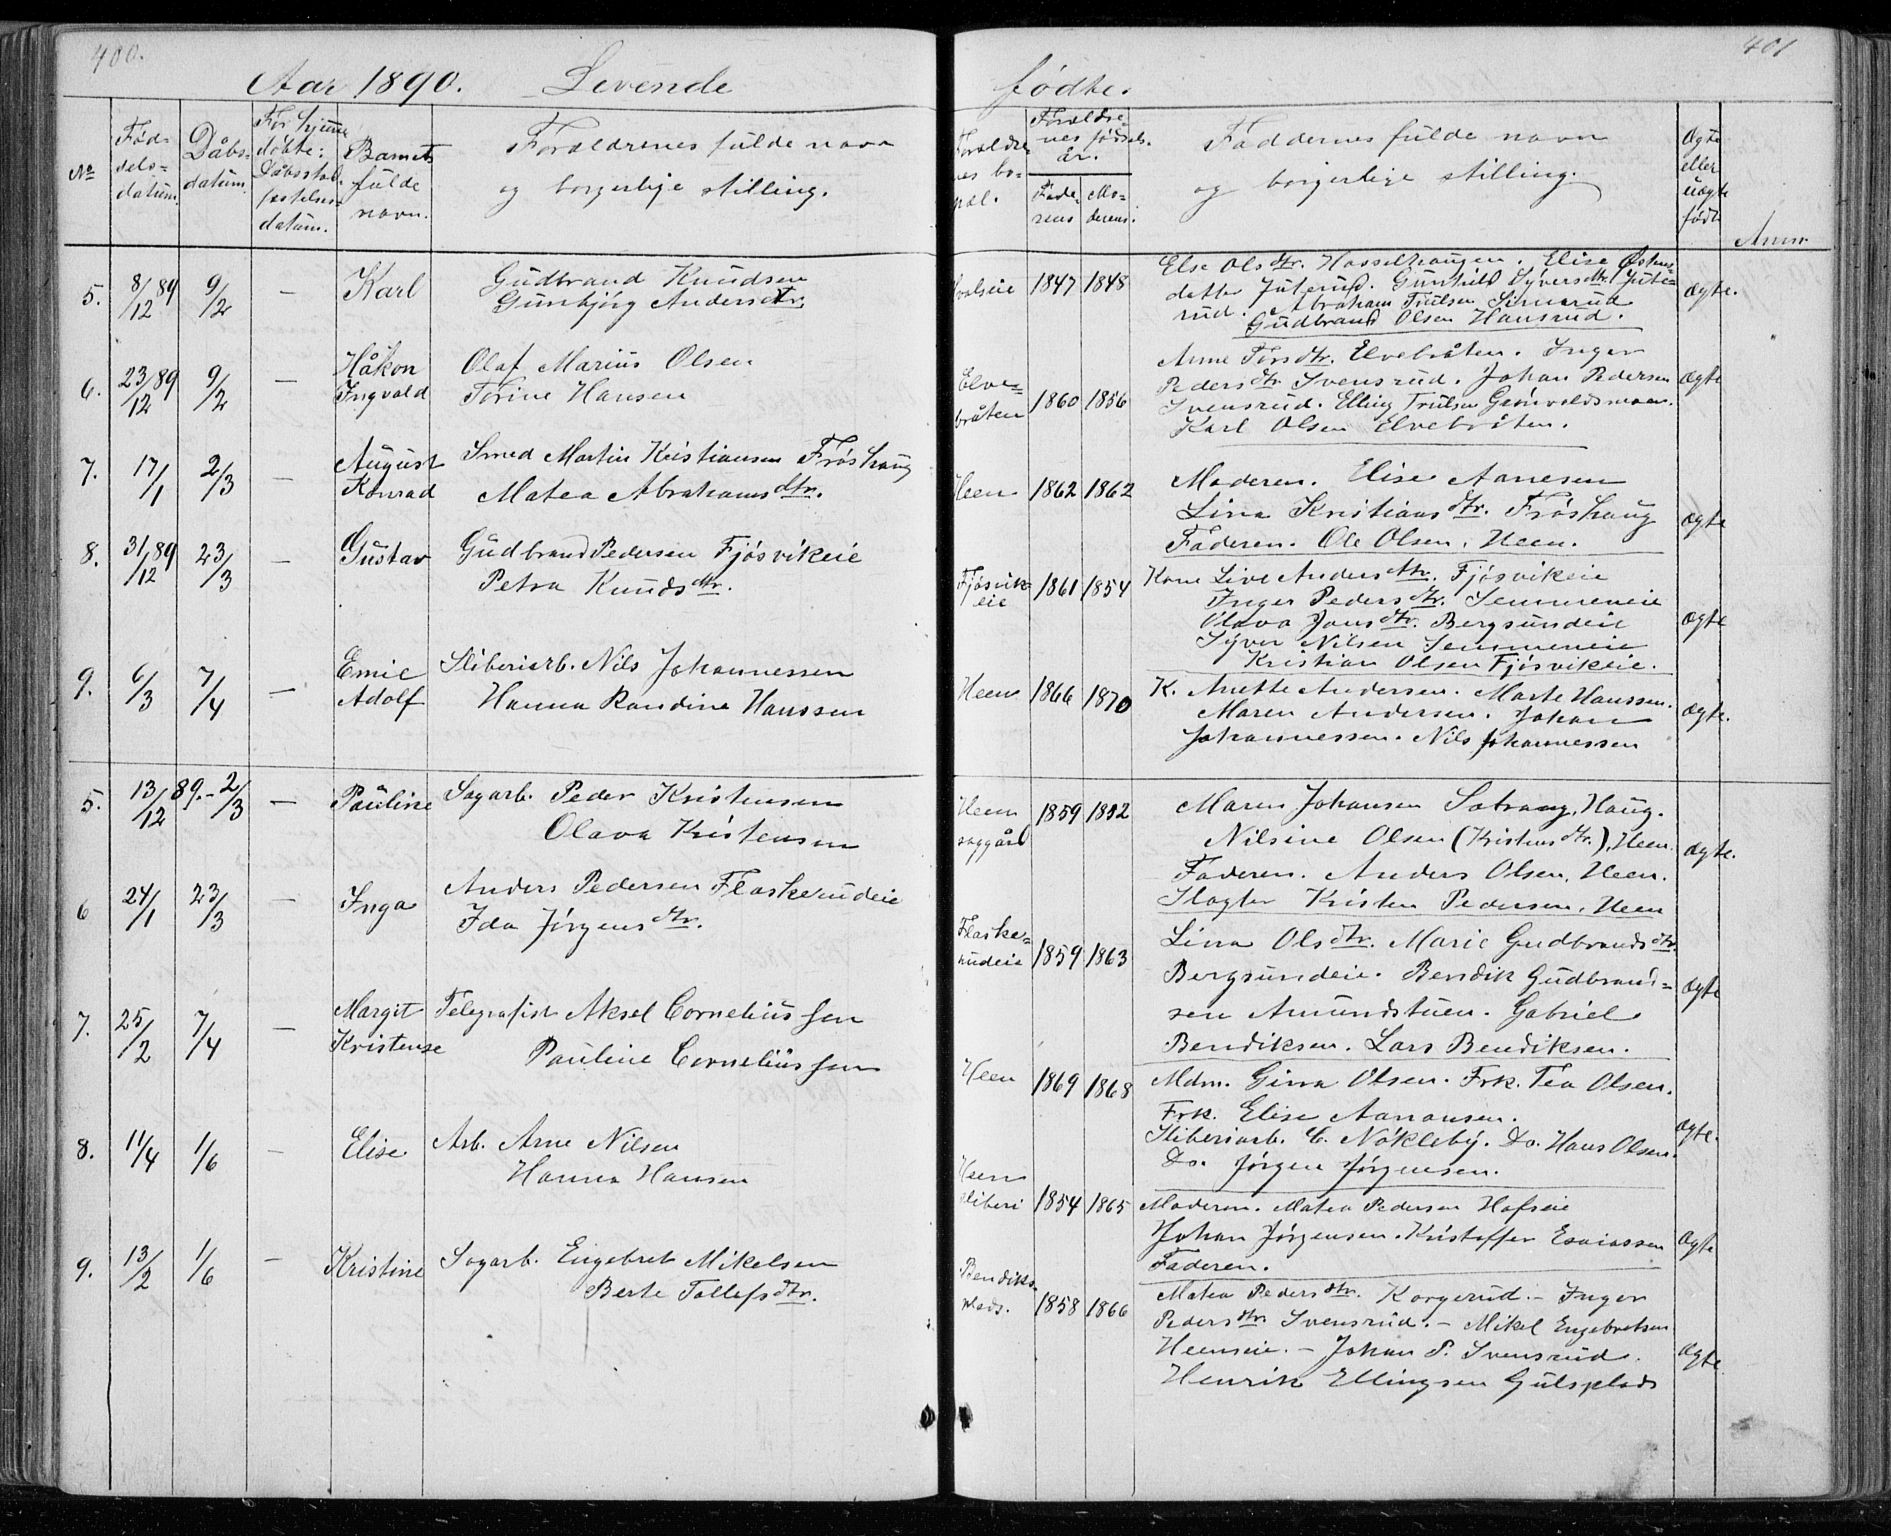 400.
401
Aar 1890. Levende fødte.
No
Fødselsdatum.
Dåbsdatum.
For hjemmedøbte: Dåbsstadfæstelsesdatum.
Barnets fulde navn.
Forældrenes fulde navn og borgerlige stilling.
Forældrenes bopæl.
Forældrenes fødselsår.
Faderens
Moderens.
Faddernes fulde navn og borgerlige stilling.
Ægte eller uægte født
Anm
5. 8/12 89 9/2 — Karl
Gudbrand Knudsen
Gunbjørg Andersdtr.
Hvalseie 1847 1848
Else Olsdtr. Hasselhaugen. Elise Østensdatter Juterud. Gunhild Syversdtr. Juterud. Abraham Trulsen Simerud
Gudbrand Olsen Hansrud.
Ægte.
6. 23/12 89 9/2 — Håkon Ingvald
Olaf Marius Olsen
Torine Hansen
Elvebråten 1860 1856
Anne Torsdtr. Elvebråten. Inger
Pedersdtr Svensrud. Johan Pedersen
Svensrud. Elling Trulsen Grønvoldsmoen.
Karl Olsen Elvebråten.
Ægte
7. 17/1 2/3 — August Konrad
Smed Martin Kristiansen Frøshaug
Matea Abrahamsdtr.
Heen 1862 1862
Moderen. Elise Aanesen
Lina Kristiansdtr. Frøshaug
Faderen. Ole Olsen, Heen.
Ægte
8. 31/12 89 23/3 — Gustav
Gudbrand Pedersen Fjøsvikeie
Petra Knudsdtr.
Fjøsvikeie 1861 1854
Kone Live Andersdtr. Fjøsvikeie
Inger Pedersdtr. Semmeneie
Olava Jonsdtr. Bergsundeie
Syver Nilsen Semmeneie
Kristian Olsen Fjøsvikeie.
Ægte
9. 6/3 7/4 — Emil Adolf
Sliberiarb. Nils Johannessen
Hanna Randine Hanssen
Heen 1866 1870
K. Anette Andersen. Marte Hanssen.
Maren Andersen. Johan
Johannessen. Nils Johannessen
Ægte.
5. 13/12 89. - 2/3 — Pauline
Sagarb. Peder Kristensen
Olava Kristensen
Heen saggård 1859 1852
Maren Johansen Satrang, Haug.
Nilsine Olsen (Kristensdtr.), Heen.
Faderen. Anders Olsen, Heen.
Slagter Kristen Pedersen, Heen
Ægte.
6 24/1 23/3 — Inga
Anders Pedersen Flaskerudeie
Ida Jørgensdtr.
Flaskerudeie 1859 1863
Lina Olsdtr. Marie Gudbrandsdtr.
Bergsundeie. Bendik Gudbrandsen Amundstuen. Gabriel
Bendiksen. Lars Bendiksen.
Ægte
7. 25/2 7/4 — Margit Kristense
Telegrafist Aksel Corneliussen
Pauline Corneliussen
Heen 1869 1868
Mdm. Gina Olsen. Frk. Tea Olsen.
Frk. Elise Aanonsen.
Sliberiarb. C. Nøkleby. Do. Hans Olsen.
Do. Jørgen Jørgensen.
Ægte.
8. 11/4 1/6 — Elise
Arb. Arne Nilsen
Hanna Hansen
Heen sliberi 1854 1865
Moderen. Matea Pedersen Hofseie
Johan Jørgensen. Kristoffer Esaiassen
Faderen.
Ægte
9. 13/2 1/6 — Kristine
Sagarb. Engebret Mikelsen
Berte Tollefsdtr.
Bendiksplads. 1858 1866
Matea Pedersdtr. Korgerud. - Inger
Pedersdtr Svensrud. - Mikel Engebretsen
Heenseie. - Johan P. Svensrud.
Henrik Ellingsen Gulsplads
Ægte